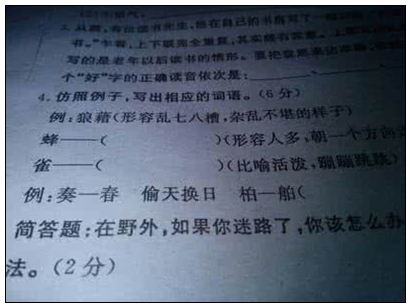 2.从前,有位读书先生,他在自己的书房写了一
书。"乍看,上下联完全重复,其实颇有
写的是老年以后读书的情形。要把意思表达
个"好"字的正确读音依次是:
4.仿照例子,写出相应的词语。(6分)
例:狼藉(形容乱七八糟,杂乱不堪的样子)
蜂——( )(形容人多,朝一个方向
雀——( )(比喻活泼,蹦蹦跳跳)
例:奏—春 偷天换日 柏—船(
简答题:在野外,如果你迷路了,你该怎么办
法。(2分)